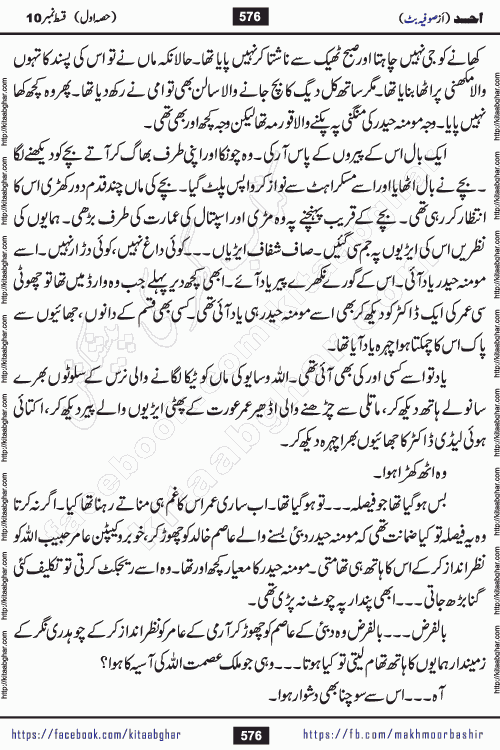 احمد (از صوفیہ بٹ) 576 (حصہ اول) قسط نمبر 10
کھانے کو جی نہیں چاہتا اور صبح ٹھیک سے ناشتا کر نہیں پایا تھا۔ حالانکہ ماں نے تو اس کی پسند کا تہوں
والا مکھنی پراٹھا بنایا تھا۔ مگر ساتھ کل دیگ کا بچ جانے والا سالن بھی تو امی نے رکھ دیا تھا۔ پھر وہ کچھ کھا
نہیں پایا۔ وجہ مومنہ حیدر کی منگنی پہ پکنے والا قورمہ تھا لیکن وجہ کچھ اور بھی تھی۔
ایک بال اس کے پیروں کے پاس آرکی۔ وہ چونکا اور اپنی طرف بھاگ کر آتے بچے کو دیکھنے لگا
۔ بچے نے بال اٹھایا اور اسے مسکراہٹ سے نواز کر واپس پلٹ گیا۔ بچے کی ماں چند قدم دور کھڑی اس کا
انتظار کر رہی تھی۔ بچے کے قریب پہنچنے پہ وہ مڑی اور اسپتال کی عمارت کی طرف بڑھی۔ ہمایوں کی
نظریں اس کی ایڑیوں پہ جم سی گئیں۔ صاف شفاف ایڑیاں۔۔۔ کوئی داغ نہیں، کوئی دراڑ نہیں۔ اسے
مومنہ حیدر یاد آئی۔ اس کے گورے نکھرے پیر یاد آئے۔ ابھی کچھ دیر پہلے جب وہ وارڈ میں تھا تو چھوٹی
سی عمر کی ایک ڈاکٹر کو دیکھ کر بھی اسے مومنہ حیدر ہی یاد آئی تھی۔ کسی بھی قسم کے دانوں، جھائیوں سے
پاک اس کا چمکتا ہوا چہرہ یاد آیا تھا۔
یاد تو اسے کسی اور کی بھی آئی تھی۔ اللہ وسایو کی ماں کو ٹیکا لگانے والی نرس کے سلوٹوں بھرے
سانولے ہاتھ دیکھ کر، ماتلی سے چڑھنے والی ادھیڑ عمر عورت کے پھٹی ایڑیوں والے پیر دیکھ کر، اکتائی
ہوئی لیڈی ڈاکٹر کا جھائیوں بھرا چہرہ دیکھ کر۔
وہ اٹھ کھڑا ہوا۔
بس ہو گیا تھا جو فیصلہ۔۔۔ تو ہو گیا تھا۔ اب ساری عمر اس کا غم ہی مناتے رہنا تھا کیا۔ اگر نہ کرتا
وہ یہ فیصلہ تو کیا ضمانت تھی کہ مومنہ حیدر دبئی بسنے والے عاصم خالد کو چھوڑ کر، خوبرو کیپٹن عامر حبیب اللہ کو
نظر انداز کر کے اس کا ہاتھ ہی تھامتی۔ مومنہ حیدر کا معیار کچھ اور تھا۔ وہ اسے ریجکٹ کرتی تو تکلیف کئی
گنا بڑھ جاتی۔۔۔ ابھی پندار پہ چوٹ نہ پڑی تھی۔
بالفرض۔۔۔ بالفرض وہ دبئی کے عاصم کو چھوڑ کر آرمی کے عامر کو نظر انداز کر کے چوہدری نگر کے
زمیندار ہمایوں کا ہاتھ تھام لیتی تو کیا ہوتا۔۔۔ وہی جو ملک عصمت اللہ کی آسیہ کا ہوا؟
آہ۔۔۔ اس سے سوچنا بھی دشوار ہوا۔
https://facebook.com/kitaabghar 576 https://fb.com/makhmoorbashir
http://kitaabghar.com